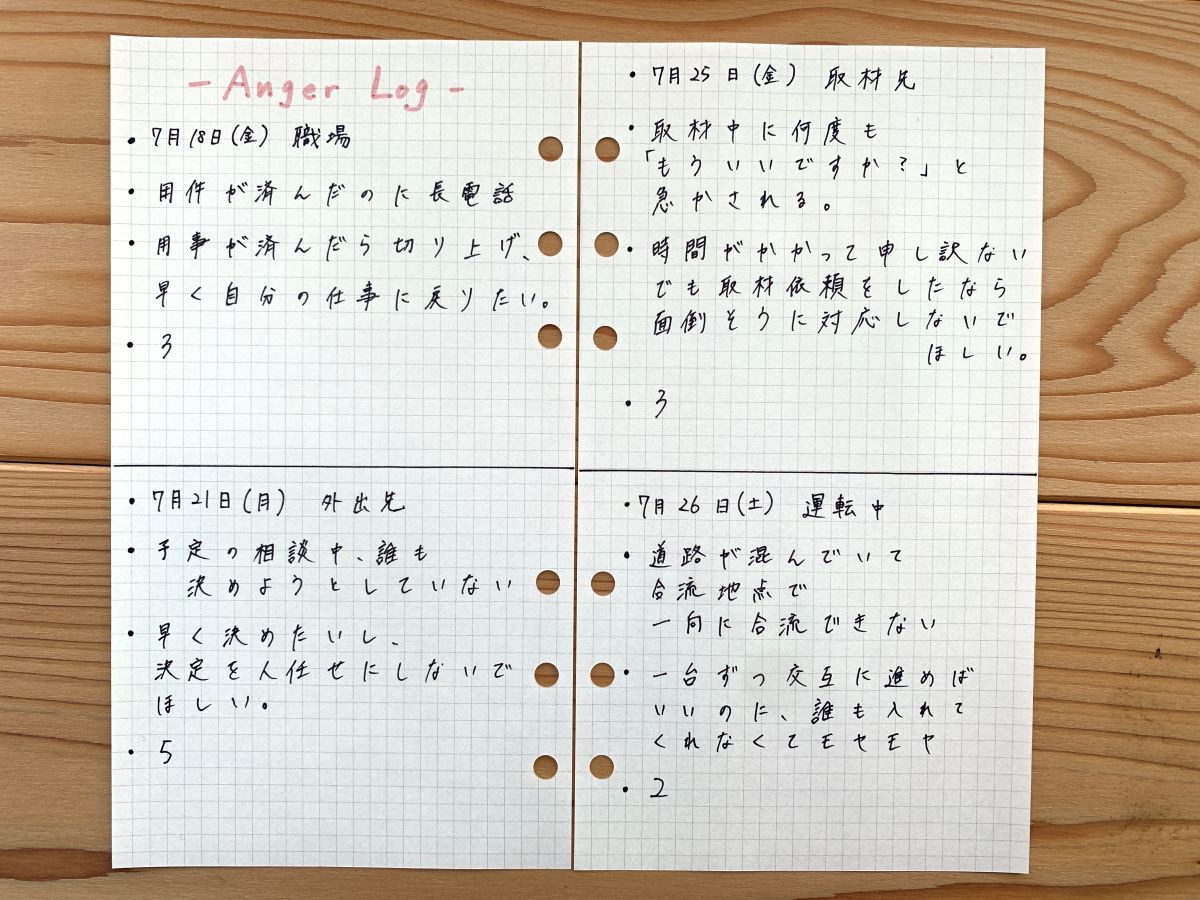 - Anger Log -
• 7月18日(金) 職場
• 用件が済んだのに長電話
• 用事が済んだら切り上げ、
早く自分の仕事に戻りたい。
• 3
• 7月21日(月) 外出先
• 予定の相談中、誰も
決めようとしていない
• 早く決めたいし、
決定を人任せにしないで
ほしい。
• 5
• 7月25日(金) 取材先
• 取材中に何度も
「もういいですか?」と
急かされる。
• 時間がかかって申し訳ない
でも取材依頼をしたなら
面倒そうに対応しないで
ほしい。
• 3
• 7月26日(土) 運転中
• 道路が混んでいて
合流地点で
一向に合流できない
• 一台ずつ交互に進めば
いいのに、誰も入れて
くれなくてモヤモヤ
• 2